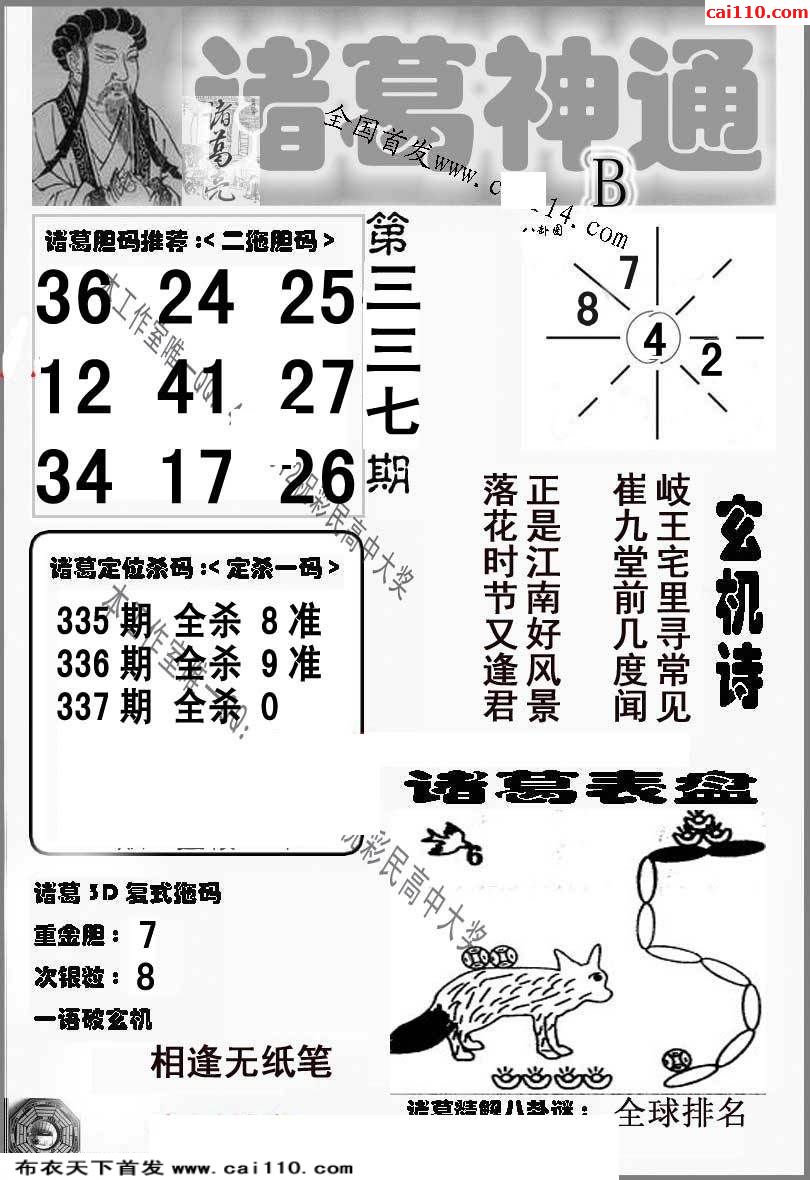 cai110.com
诸葛神通
诸葛亮
全国首发www.c
14.com
B
诸葛胆码推荐:<二拖胆码>
36 24 25
12 41 27
34 17 26
第三三七期
八卦图
7
8
4
2
玄机诗
岐王宅里寻常见
崔九堂前几度闻
正是江南好风景
落花时节又逢君
本工作室唯一QQ:
祝彩民高中大奖
诸葛定位杀码:<定杀一码>
335期 全杀 8准
336期 全杀 9准
337期 全杀 0
本工作室唯一QQ:
祝彩民高中大奖
诸葛表盘
6
诸葛3D复式拖码
重金胆: 7
次银粒: 8
一语破玄机
相逢无纸笔
诸葛精解八卦谜: 全球排名
布衣天下首发 www.cai110.com